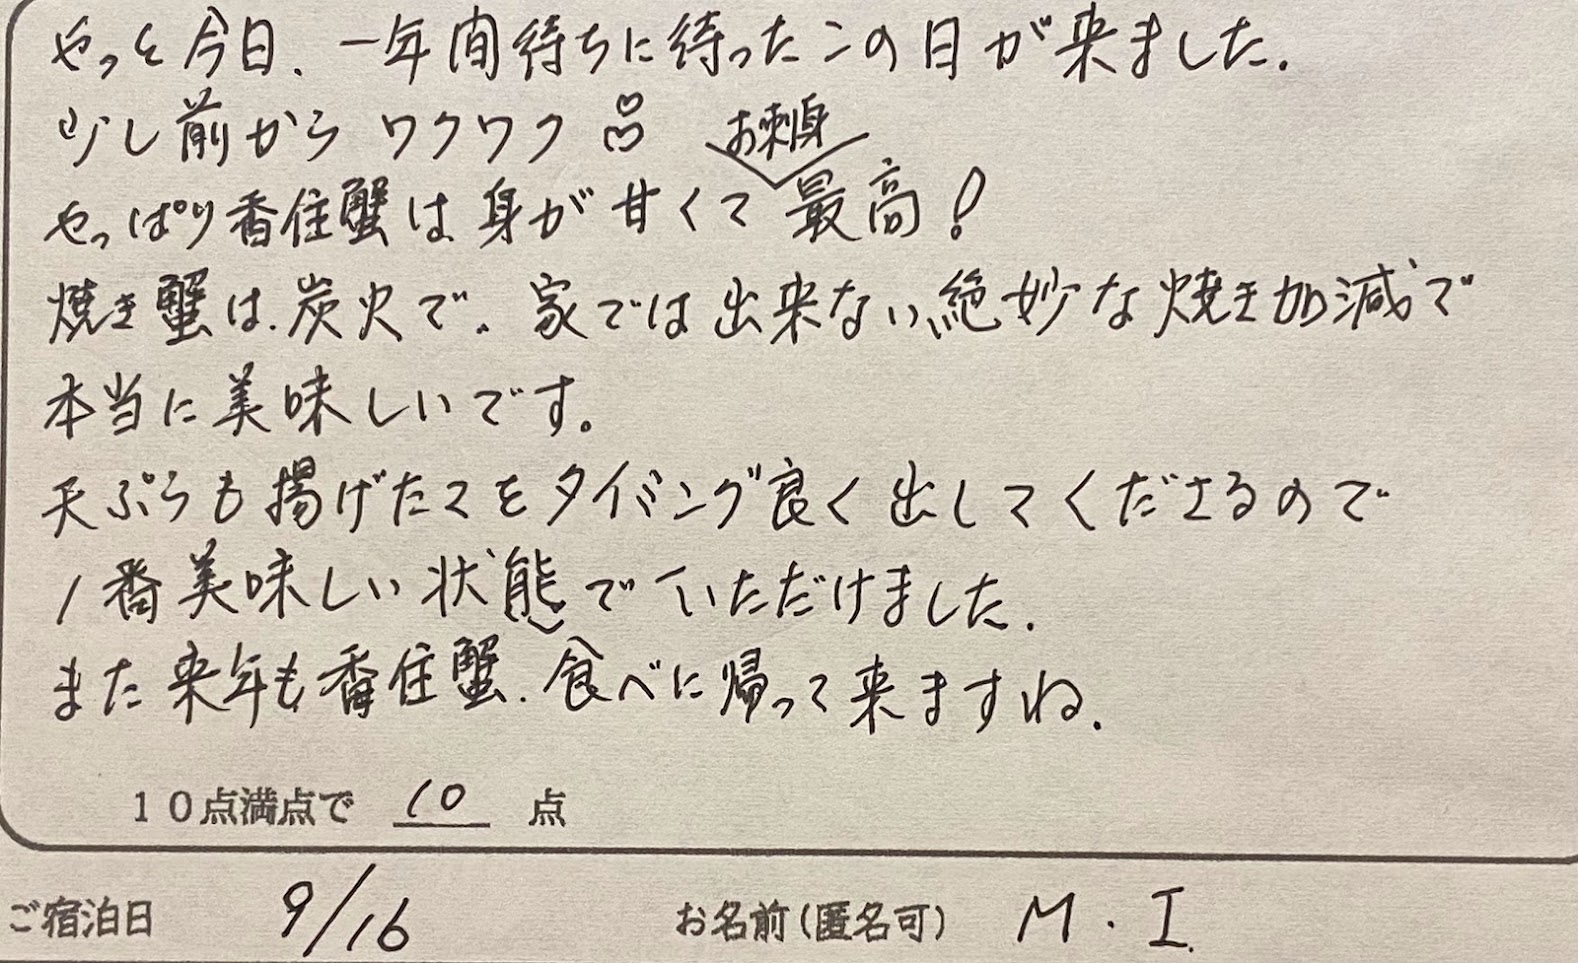 やっと今日、一年間待ちに待ったこの日が来ました.
少し前から ワクワク ♡♡
お刺身
やっぱり香住蟹は身が甘くて最高!
焼き蟹は、炭火で、家では出来ない、絶妙な焼き加減で
本当に美味しいです。
天ぷらも揚げたてをタイミング良く出してくださるので
1番美味しい状態でいただけました.
また来年も香住蟹、食べに帰って来ますね.
10点満点で 10 点
ご宿泊日 9/16 お名前(匿名可) M・I.